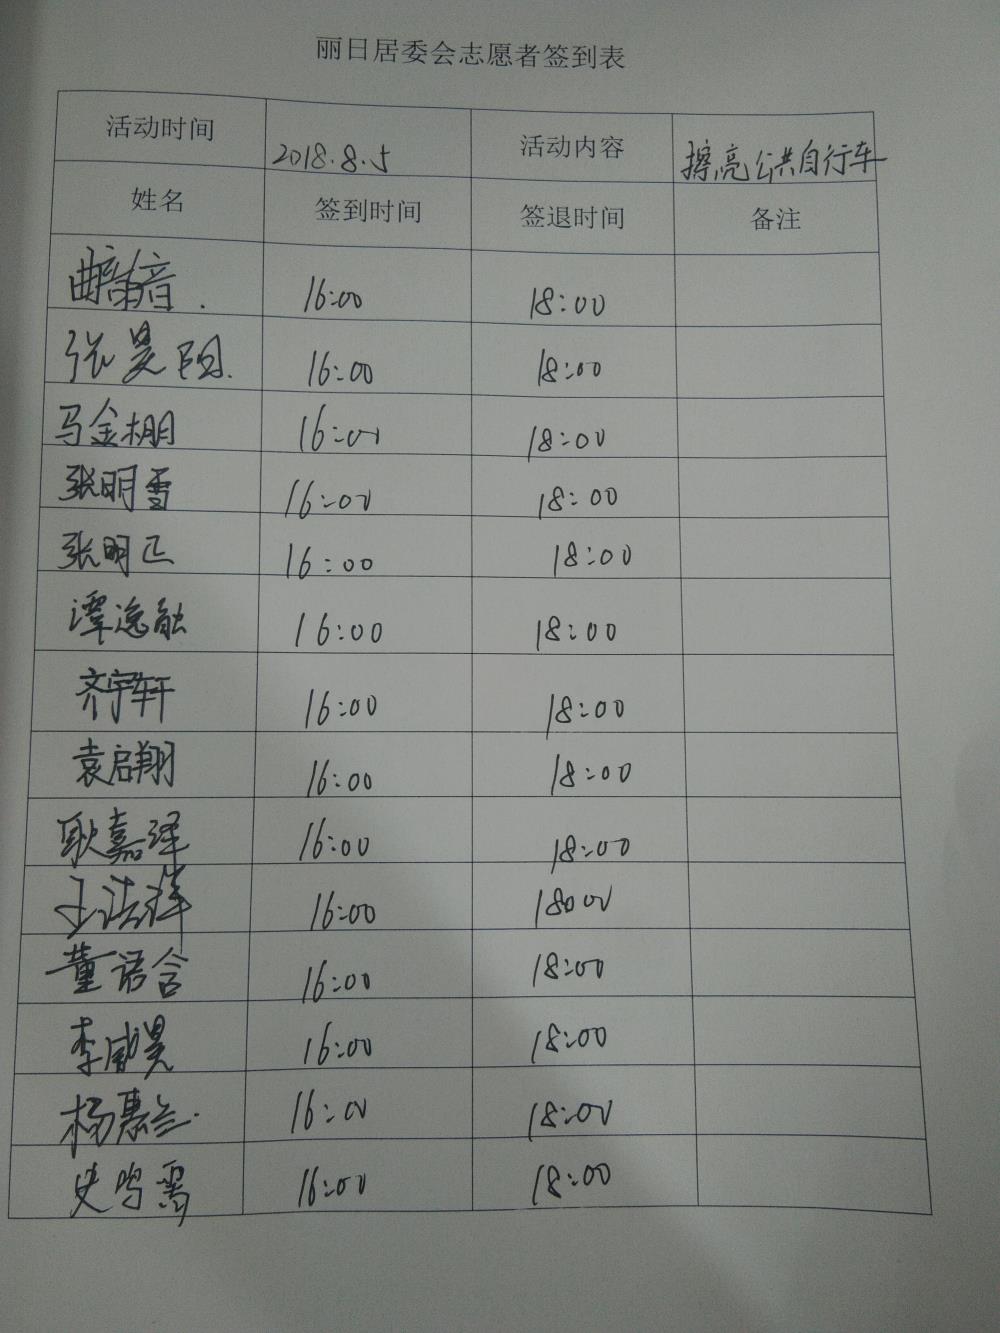 丽日居委会志愿者签到表
活动时间 2018.8.5 活动内容 擦亮公共自行车
姓名 签到时间 签退时间 备注
16:00 18:00
张昊阳. 16:00 18:00
马金棚 16:00 18:00
张明雪 16:00 18:00
张明正 16:00 18:00
谭逸融 16:00 18:00
齐宇轩 16:00 18:00
袁启翔 16:00 18:00
耿嘉泽 16:00 18:00
王浩洋 16:00 1800
董语含 16:00 18:00
李威昊 16:00 18:00
杨惠兰. 16:00 18:00
史鸣 16:00 18:00